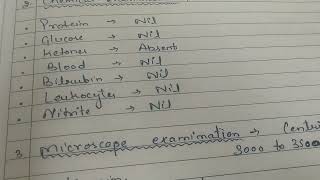 2. Chemical examination
• Protein → Nil
• Glucose → Nil
• Ketones → Absent
• Blood → Nil
• Bilirubin → Nil
• Leukocytes → Nil
• Nitrite → Nil
3. Microscope examination →
3000 to